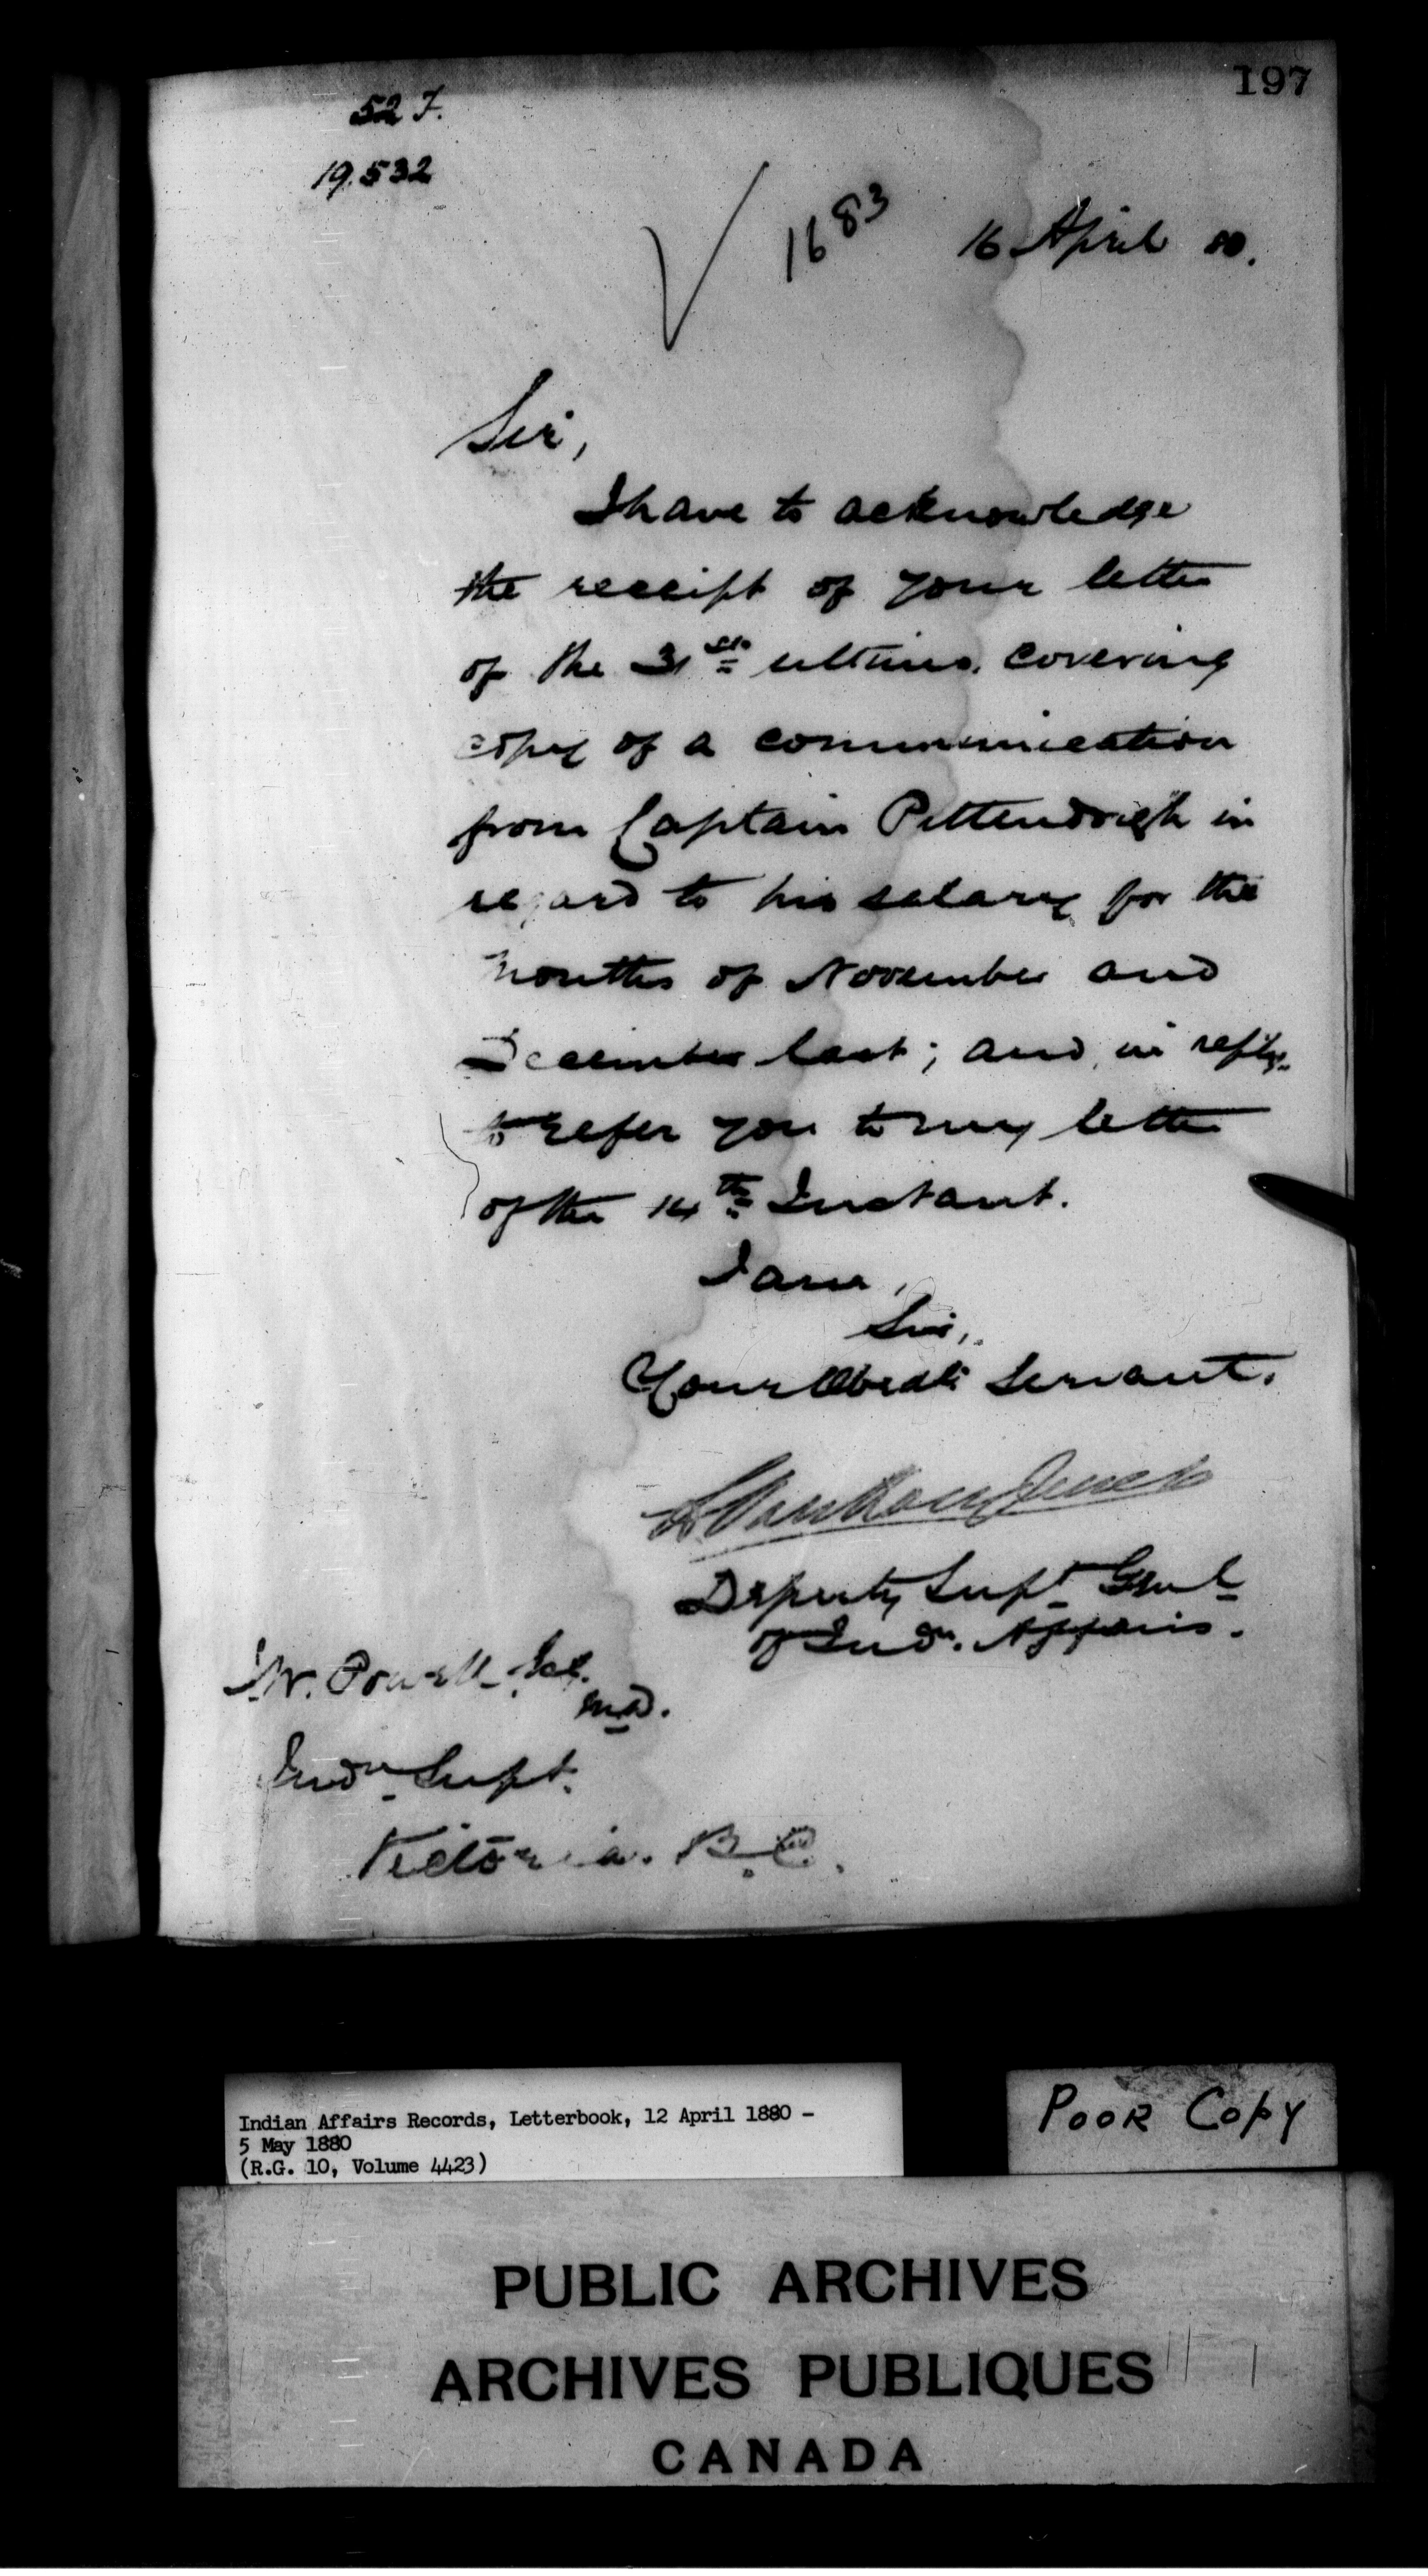 197
52 F.
19.532
1683
16 April 80.
Sir,
I have to acknowledge
the receipt of your letter
of the 31st ultimo, covering
copy of a communication
from Captain Pittendrigh in
regard to his salary for the
months of November and
December last; and, in reply,
to refer you to my letter
of the 14th Instant.
I am,
Sir,
Your Obedt Servant.
L. VanKoughnet
Deputy Supt Genl
of Indn. Affairs.
I.W. Powell Esq.
M.D.
Indn Supt.
Victoria. B.C.
Indian Affairs Records, Letterbook, 12 April 1880 -
5 May 1880
(R.G. 10, Volume 4423)
POOR COPY
PUBLIC ARCHIVES
ARCHIVES PUBLIQUES
CANADA